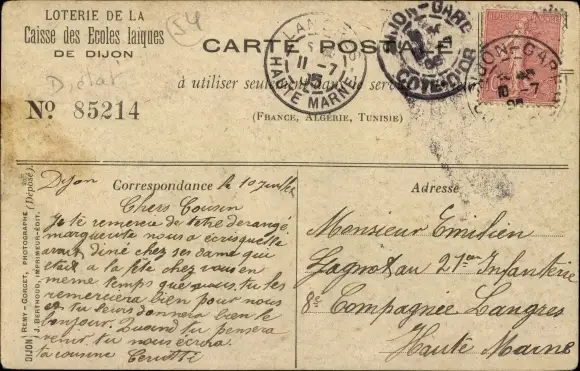 LOTERIE DE LA
Caisse des Ecoles laïques
DE DIJON
54
CARTE POSTALE
à utiliser seulement dans de service
(FRANCE, ALGÉRIE, TUNISIE)
Nº 85214
LANGRES
11 -7
05
HAUTE MARNE
DIJON-GARE
COTE-D'OR
DIJON-GARE
Correspondance
Adresse
Dijon le 10 Juillet
Chers Cousin
Je te remercie de t'etre derangé
marguerite nous a écris quelle
avait diné chez ses dame qui
etait a la fête chez vous en
meme temps que nous, tu les
remerciera bien pour nous
et tu leurs donnera bien le
bonjour. Quand tu pensera
venir tu nous écrira
ta cousine
Monsieur Emilien
Gagnot au 21ème Infanterie
8e Compagnie Langres
Haute Marne
DIJON REMY-GORGET, PHOTOGRAPHE (Déposé)
J. BERTHOUD, IMPRIMEUR-ÉDIT.